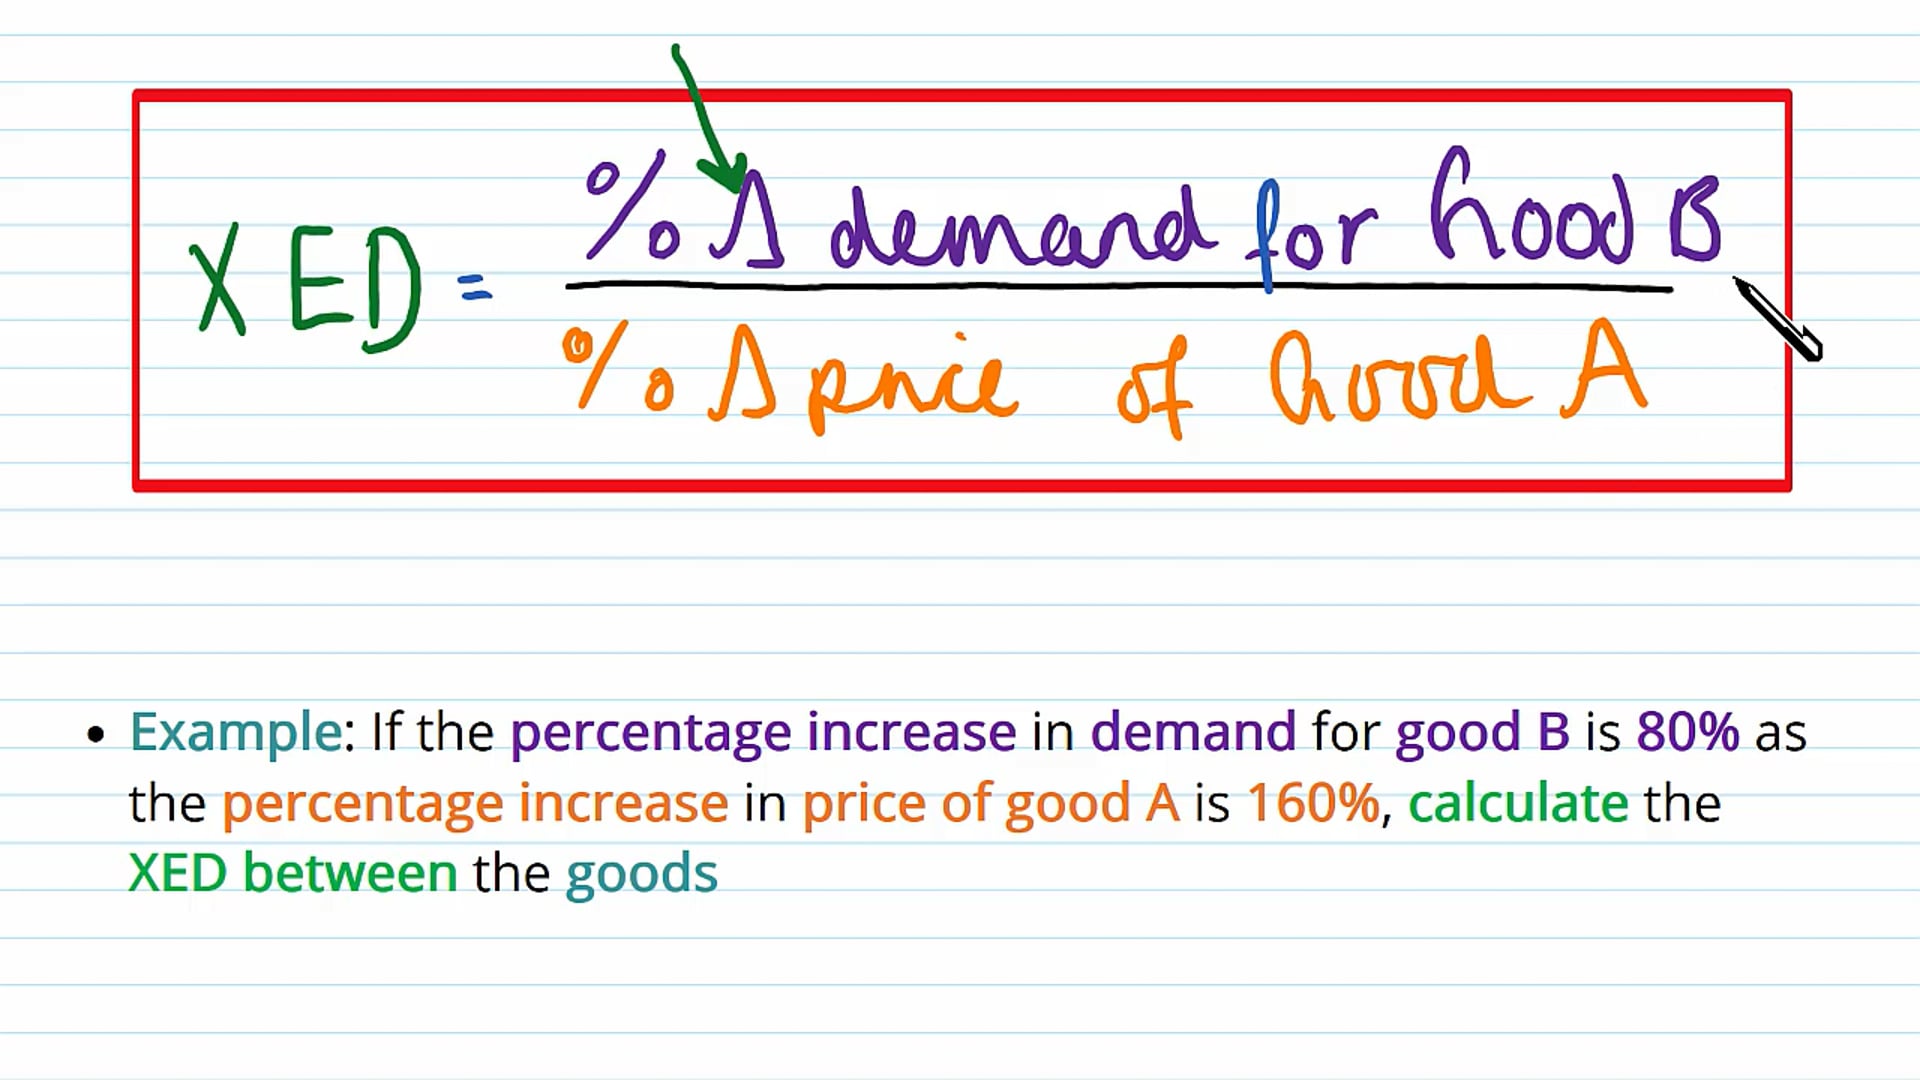 XED = % Δ demand for Good B
% Δ price of Good A
• Example: If the percentage increase in demand for good B is 80% as
the percentage increase in price of good A is 160%, calculate the
XED between the goods